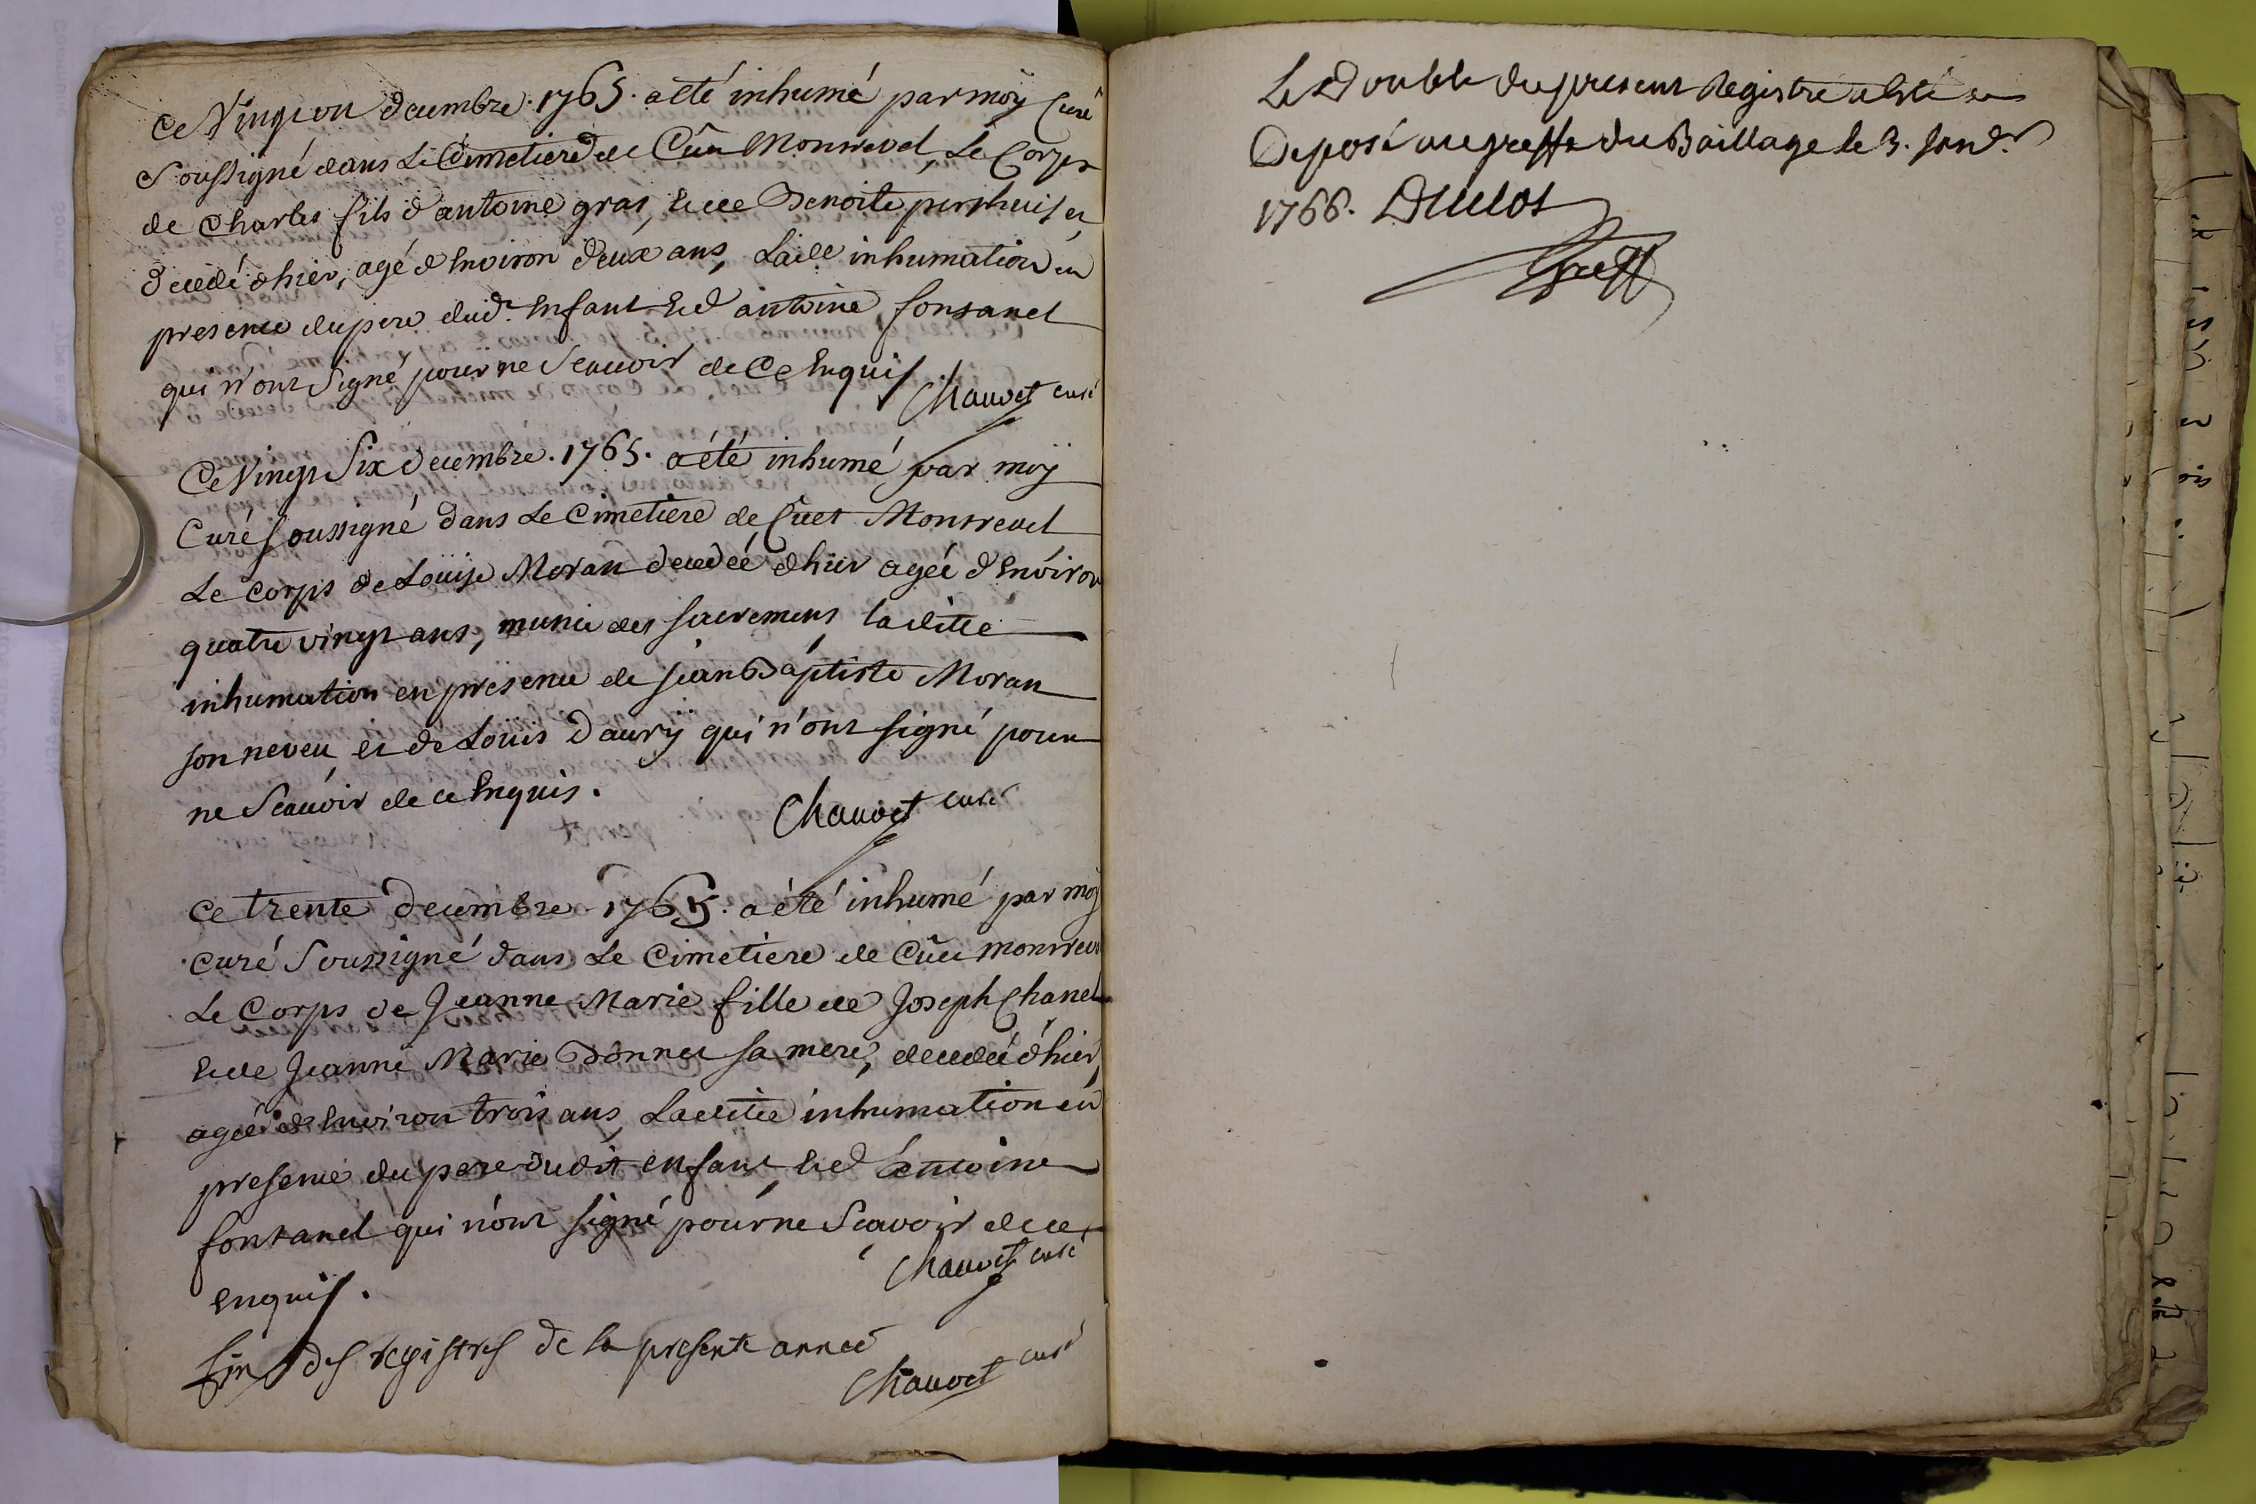 Ce Vingt un decembre. 1765. a eté inhumé par moÿ Curé
Soussigné dans Le Cimetiere de Cüet Montrevel, Le Corps
de Charles fils d'antoine gras, et de Benoite
decedé d'hier, agé d'Environ deux ans, Lad.e inhumation en
presence du pere dud.t Enfant Et d'antoine fontanel
qui n'ont Signé pour ne Scauoir de Ce Enquis
Chauvet curé
Ce Vingt Six decembre. 1765. a été inhumé par moÿ
Curé soussigné dans Le Cimetiere de Cuet Montrevel
Le Corps de Loüise Moran decedeé d'hier ageé d'Environ
quatre vingt ans, munie des sacremens, laditte
inhumation en presence de jean Baptiste Moran
son neveu, et de Loüis Daurÿ qui n'ont signé pour
ne Scauoir de ce Enquis.
Chauvet curé
Ce trente decembre. 1765. a été inhumé par moÿ
Curé Soussigné dans Le Cimetiere de Cüet montrevel
Le Corps de Jeanne Marie fille de Joseph Chanel
Et de Jeanne Marie Donnet sa mere, decedeé d'hier,
ageé d'Environ trois ans, Laditte inhumation en
presence du pere dudit enfant, Et d'Antoine
fontanel qui n'ont signé pour ne Scavoir de ce
Enquis.
Chauvet curé
fin des registres de la presente anneé
Chauvet curé
Le Double du present Registre a Esté
Deposé au greffe du Baillage le 3. Janv.r
1766. Duclos
Greff